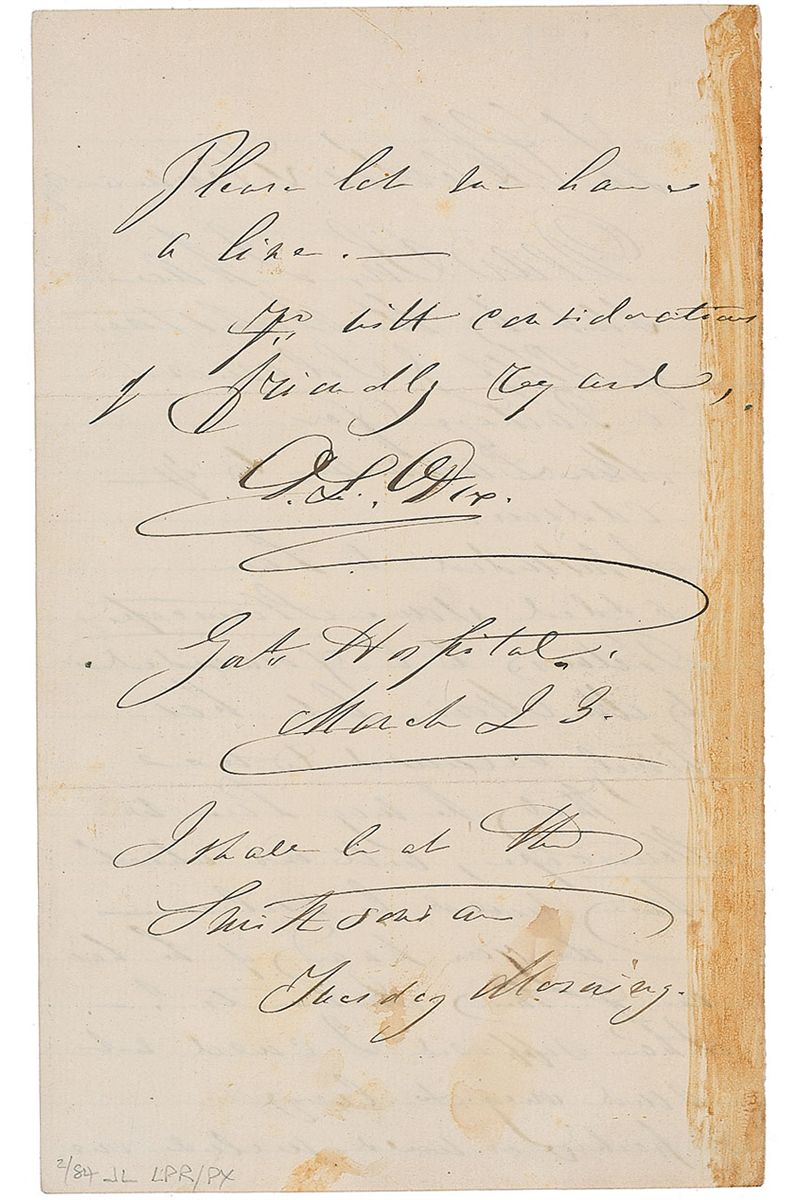 Please let me have
a line. —
Yr. with considerations
of friendly regard,
D. L. Dix.
Govt. Hospital.
March 23.
I shall be at the
Smithsonian
Tuesday Morning.
2/84 JL LPR/PX